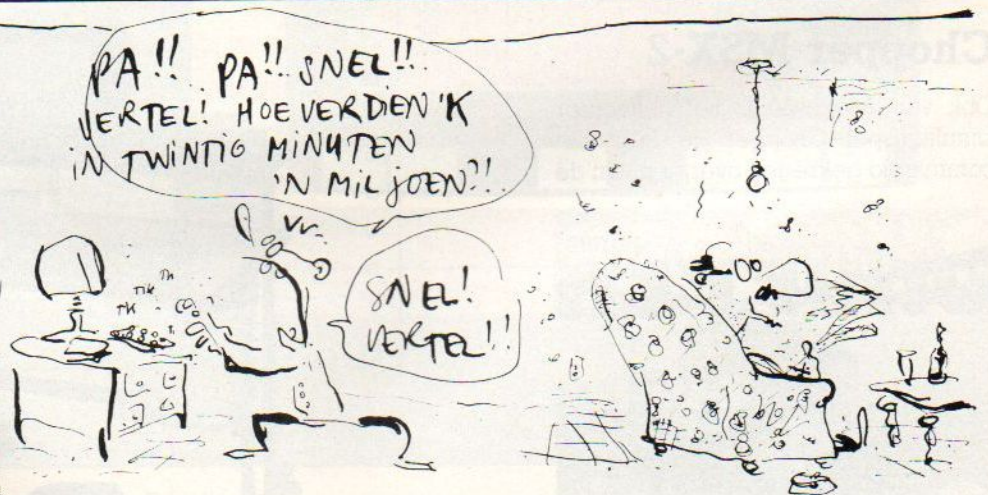 PA!! PA!! SNEL!!
VERTEL! HOE VERDIEN 'K
IN TWINTIG MINUTEN
'N MILJOEN?!
SNEL!
VERTEL!!
TIK
TIK
TIK